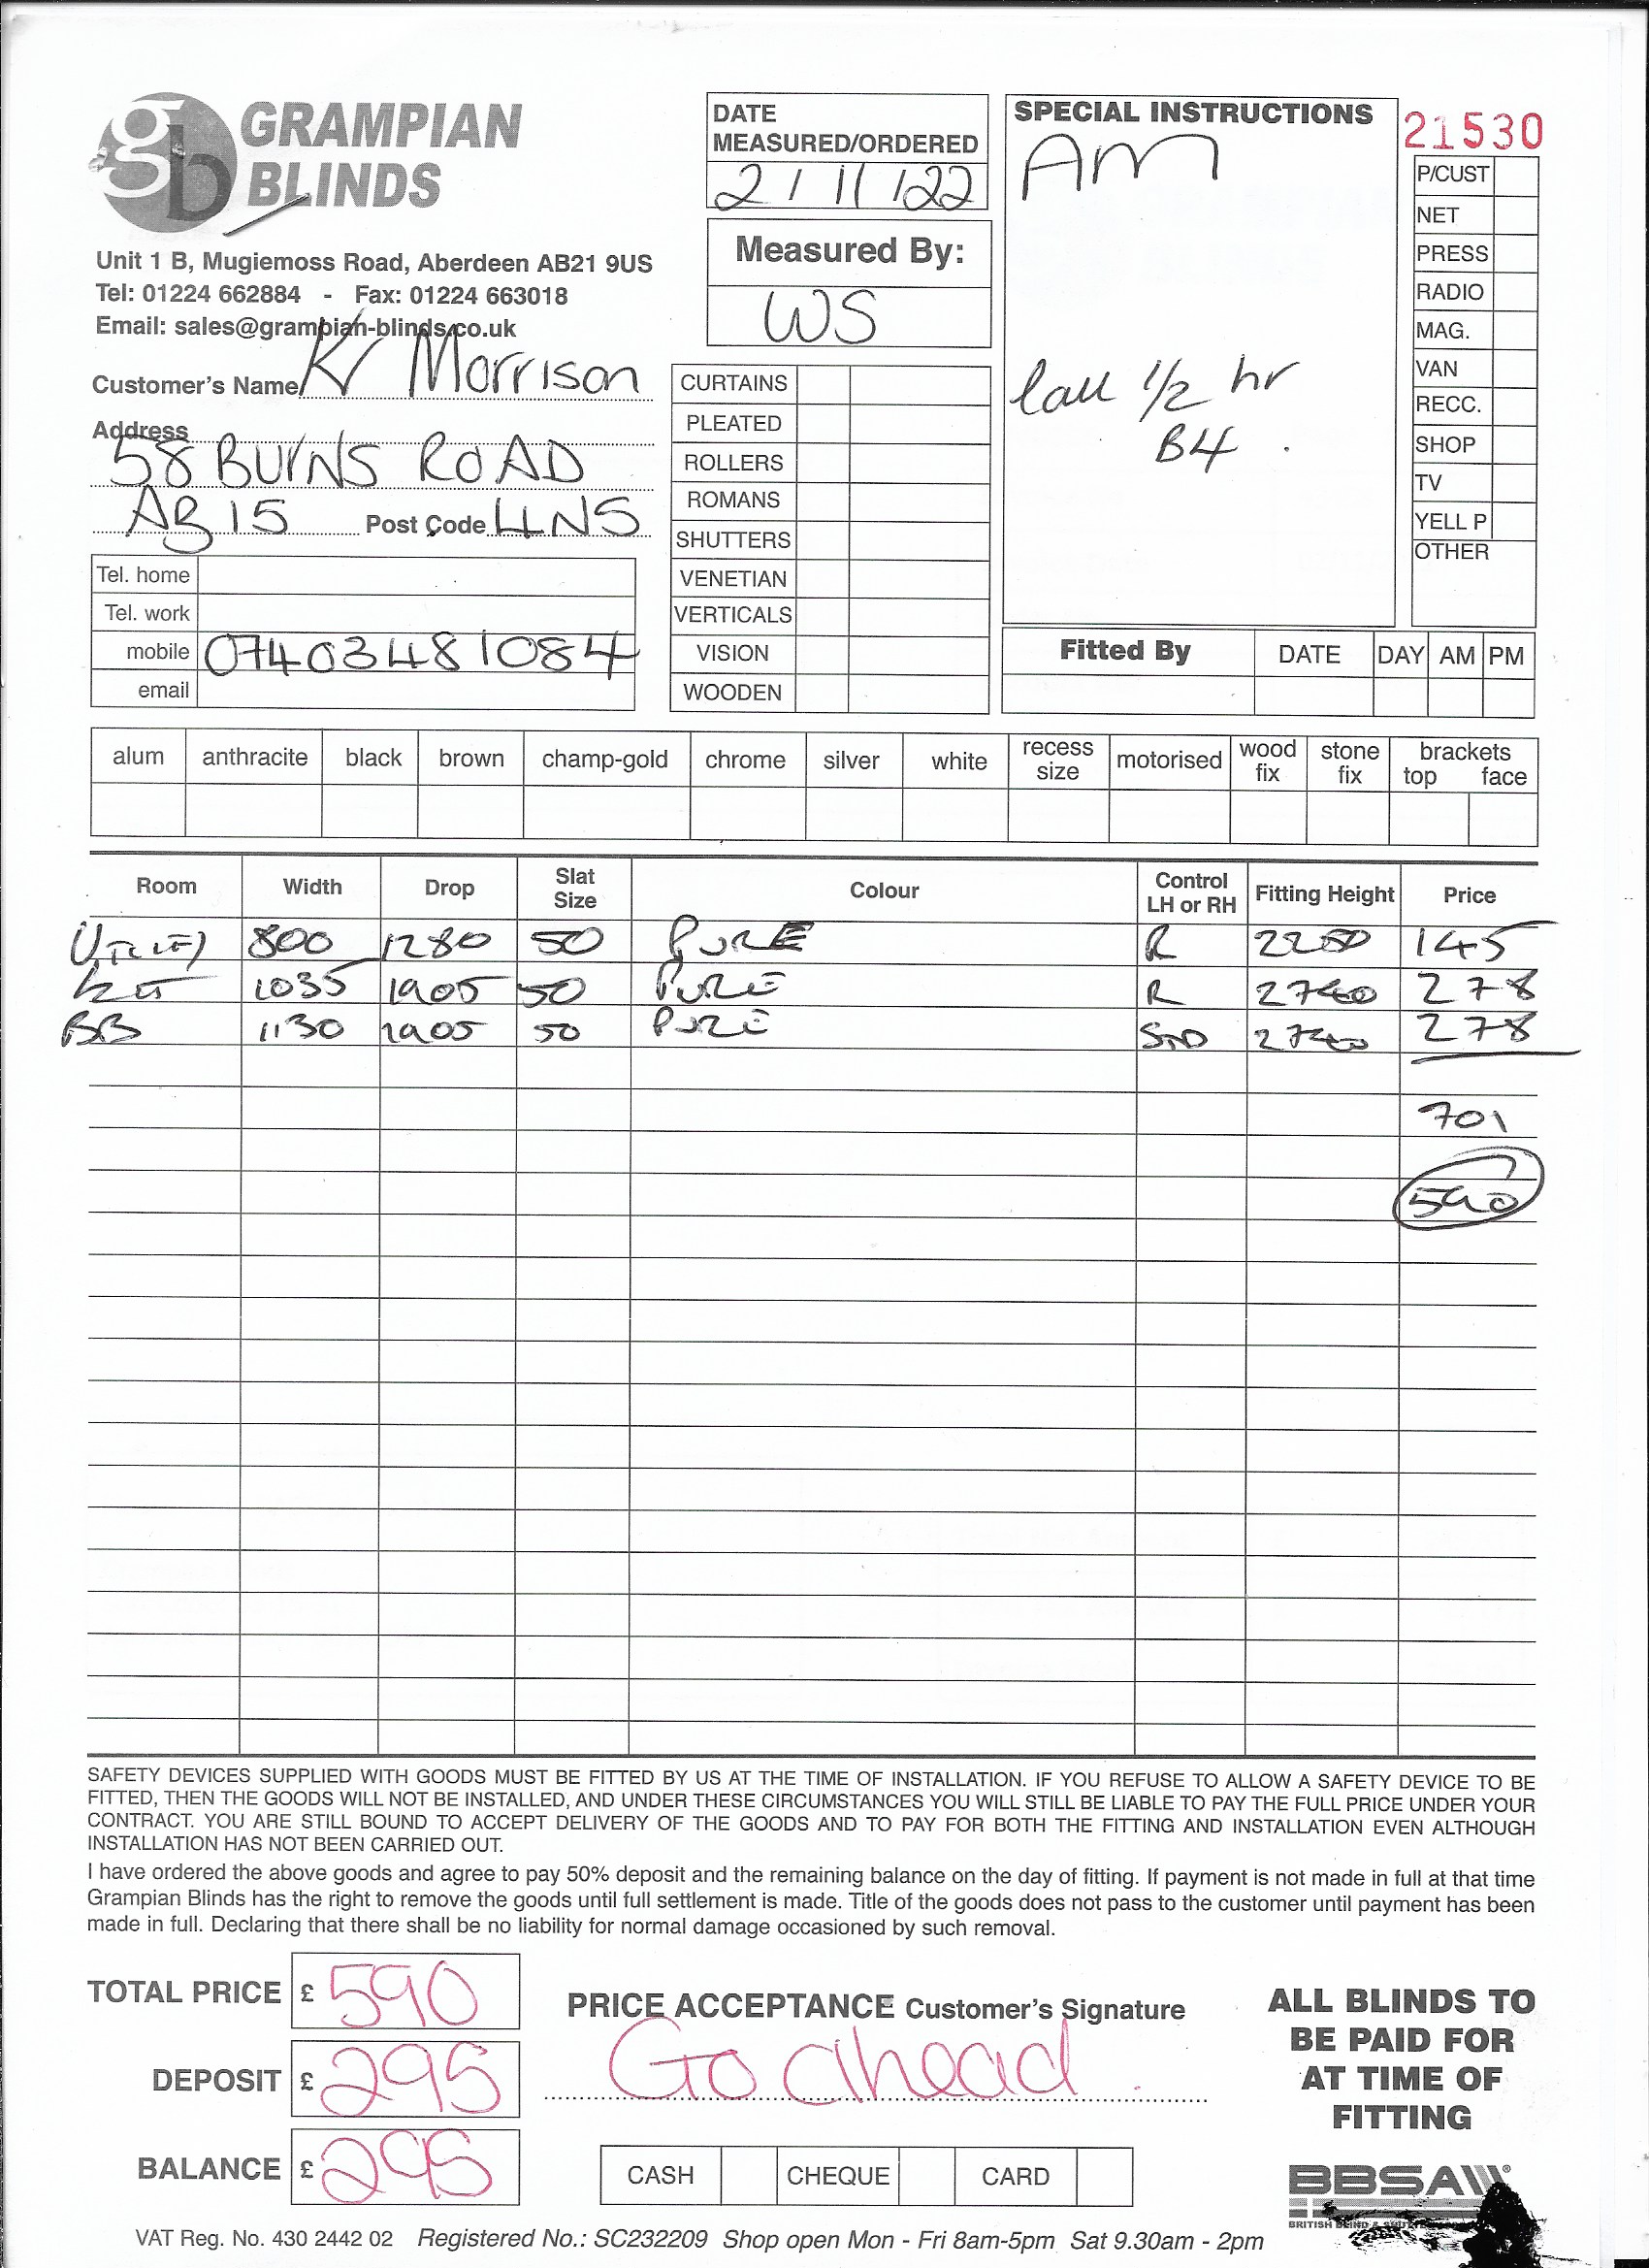 gb GRAMPIAN
BLINDS
Unit 1 B, Mugiemoss Road, Aberdeen AB21 9US
Tel: 01224 662884 - Fax: 01224 663018
Email: sales@grampian-blinds.co.uk
Customer's Name Kr Morrison
Address
58 BURNS ROAD
AB15 Post Code 4NS
Tel. home
Tel. work
mobile 07403481084
email
DATE
MEASURED/ORDERED
2/11/22
Measured By:
WS
CURTAINS
PLEATED
ROLLERS
ROMANS
SHUTTERS
VENETIAN
VERTICALS
VISION
WOODEN
SPECIAL INSTRUCTIONS
AM
Call 1/2 hr
B4.
21530
P/CUST
NET
PRESS
RADIO
MAG.
VAN
RECC.
SHOP
TV
YELL P
OTHER
Fitted By DATE DAY AM PM
alum anthracite black brown champ-gold chrome silver white recess size motorised wood fix stone fix brackets top face
Room Width Drop Slat Size Colour Control LH or RH Fitting Height Price
UTILITY 800 1280 50 PURE R 2250 145
1035 1905 50 PURE R 2740 278
BB 1130 1905 50 PURE STD 2740 278
701
590
SAFETY DEVICES SUPPLIED WITH GOODS MUST BE FITTED BY US AT THE TIME OF INSTALLATION. IF YOU REFUSE TO ALLOW A SAFETY DEVICE TO BE
FITTED, THEN THE GOODS WILL NOT BE INSTALLED, AND UNDER THESE CIRCUMSTANCES YOU WILL STILL BE LIABLE TO PAY THE FULL PRICE UNDER YOUR
CONTRACT. YOU ARE STILL BOUND TO ACCEPT DELIVERY OF THE GOODS AND TO PAY FOR BOTH THE FITTING AND INSTALLATION EVEN ALTHOUGH
INSTALLATION HAS NOT BEEN CARRIED OUT.
I have ordered the above goods and agree to pay 50% deposit and the remaining balance on the day of fitting. If payment is not made in full at that time
Grampian Blinds has the right to remove the goods until full settlement is made. Title of the goods does not pass to the customer until payment has been
made in full. Declaring that there shall be no liability for normal damage occasioned by such removal.
TOTAL PRICE £ 590
DEPOSIT £ 295
BALANCE £ 295
PRICE ACCEPTANCE Customer's Signature
Go ahead
CASH CHEQUE CARD
ALL BLINDS TO
BE PAID FOR
AT TIME OF
FITTING
BBSA®
BRITISH BLIND &
VAT Reg. No. 430 2442 02 Registered No.: SC232209 Shop open Mon - Fri 8am-5pm Sat 9.30am - 2pm